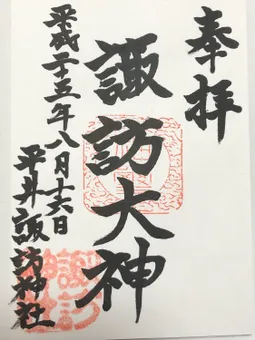 奉拝
諏訪大神
平成二十三年八月十六日
平井諏訪神社